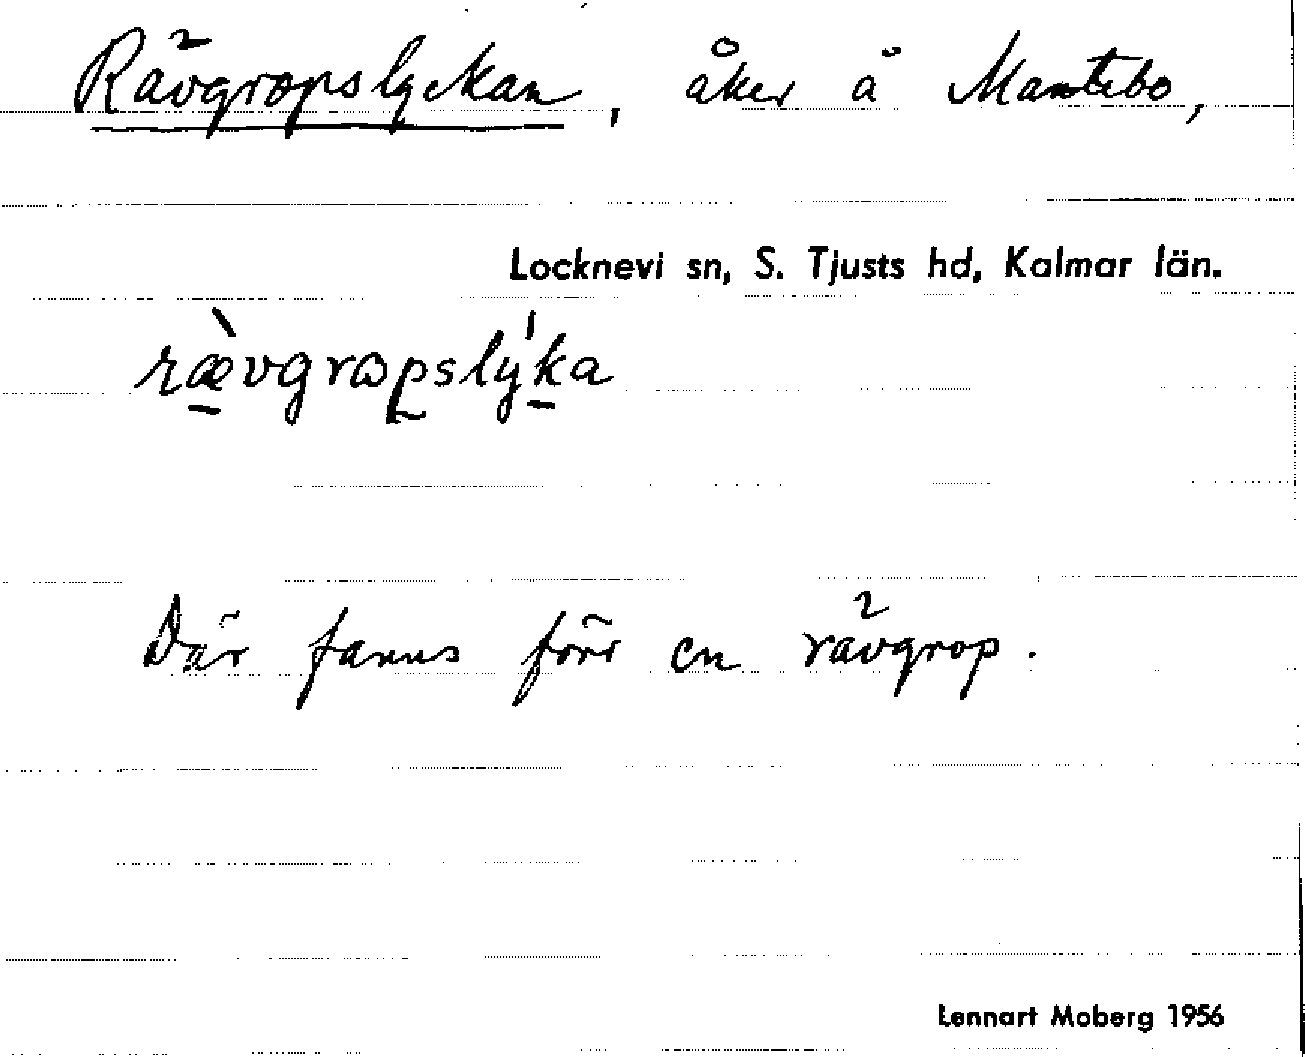 Rävgropslyckan, åker å Mantebo,
Locknevi sn, S. Tjusts hd, Kalmar län.
ræ̀vgrɷpslýka
Där fanns förr en rävgrop.
Lennart Moberg 1956